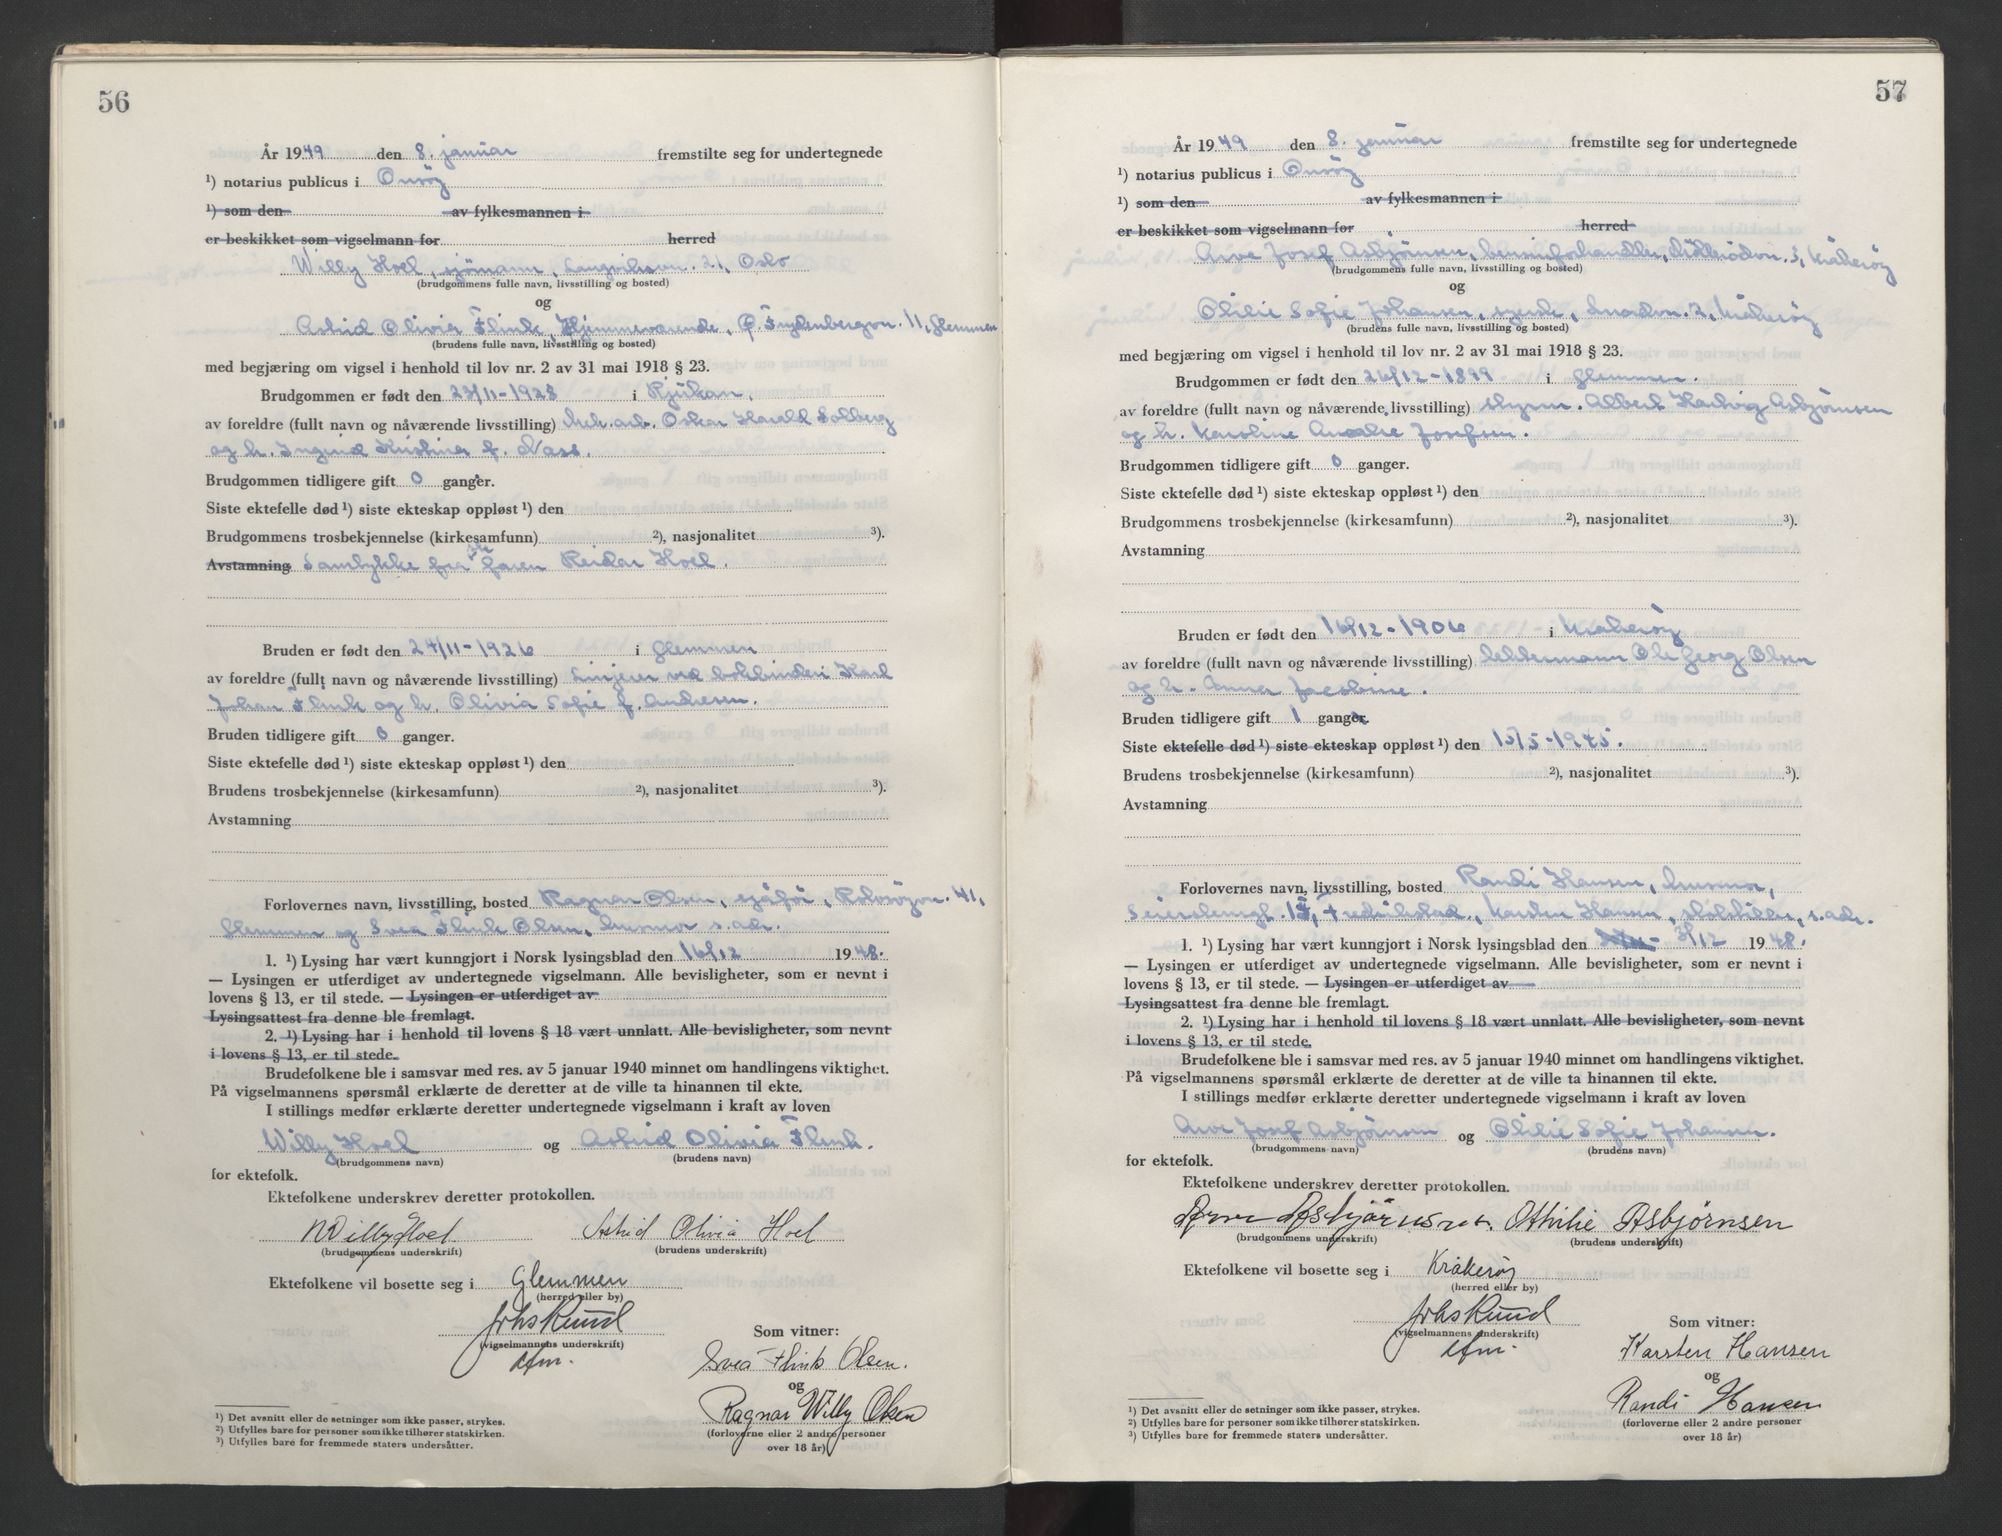 56
År 1949 den 8. januar fremstilte seg for undertegnede
¹) notarius publicus i Onsöy
¹) som den av fylkesmannen i
er beskikket som vigselmann for herred
Willy Hoel, sjömann, Langviksvn. 21, Oslo
(brudgommens fulle navn, livsstilling og bosted)
og
Astrid Olivia Flink, Hjemmeværende, 11, Glemmen
(brudens fulle navn, livsstilling og bosted)
med begjæring om vigsel i henhold til lov nr. 2 av 31 mai 1918 § 23.
Brudgommen er født den 23/11-1928 i Rjukan.
av foreldre (fullt navn og nåværende livsstilling) Oskar Harald Solberg
og h. Ingrid Kristine f. Næss.
Brudgommen tidligere gift 0 ganger.
Siste ektefelle død¹) siste ekteskap oppløst¹) den
Brudgommens trosbekjennelse (kirkesamfunn) ²), nasjonalitet ³).
Avstamning Samtykke fra faren Reidar Hoel.
Bruden er født den 24/11-1926 i Glemmen
av foreldre (fullt navn og nåværende livsstilling) Linjerer ved bokbinderi Karl
Johan Flink og h. Olivia Sofie f. Andresen.
Bruden tidligere gift 0 ganger.
Siste ektefelle død¹) siste ekteskap oppløst¹) den
Brudens trosbekjennelse (kirkesamfunn) ²), nasjonalitet ³).
Avstamning
Forlovernes navn, livsstilling, bosted Ragnar Olsen, sjåför, Rolvsöyvn. 41,
Glemmen og Svea Flink Olsen, husmor s. adr.
1. ¹) Lysing har vært kunngjort i Norsk lysingsblad den 16/12 1948.
— Lysingen er utferdiget av undertegnede vigselmann. Alle bevisligheter, som er nevnt i
lovens § 13, er til stede. — Lysingen er utferdiget av
Lysingsattest fra denne ble fremlagt.
2. ¹) Lysing har i henhold til lovens § 18 vært unnlatt. Alle bevisligheter, som nevnt
i lovens § 13, er til stede.
Brudefolkene ble i samsvar med res. av 5 januar 1940 minnet om handlingens viktighet.
På vigselmannens spørsmål erklærte de deretter at de ville ta hinannen til ekte.
I stillings medfør erklærte deretter undertegnede vigselmann i kraft av loven
Willy Hoel og Astrid Olivia Flink.
(brudgommens navn) (brudens navn)
for ektefolk.
Ektefolkene underskrev deretter protokollen.
Willy Hoel Astrid Olivia Hoel
(brudgommens underskrift) (brudens underskrift)
Ektefolkene vil bosette seg i Glemmen
(herred eller by)
Johs Ruud
(vigselmannens underskrift)
Som vitner:
Svea Flink Olsen.
og
Ragnar Willy Olsen
(forloverne eller 2 andre personer
over 18 år)
¹) Det avsnitt eller de setninger som ikke passer, strykes.
²) Utfylles bare for personer som ikke tilhører statskirken.
³) Utfylles bare for fremmede staters undersåtter.
57
År 1949 den 8. januar fremstilte seg for undertegnede
¹) notarius publicus i Onsöy
¹) som den av fylkesmannen i
er beskikket som vigselmann for herred
Arve Josef Asbjörnsen, 3, Kråkeröy
(brudgommens fulle navn, livsstilling og bosted)
og
Otilie Sofie Johansen, 2, Kråkeröy
(brudens fulle navn, livsstilling og bosted)
med begjæring om vigsel i henhold til lov nr. 2 av 31 mai 1918 § 23.
Brudgommen er født den 26/12-1899 i Glemmen.
av foreldre (fullt navn og nåværende livsstilling) styrm. Albert Hartvig Asbjörnsen
og h. Karoline Amalie Josefsen.
Brudgommen tidligere gift 0 ganger.
Siste ektefelle død¹) siste ekteskap oppløst¹) den
Brudgommens trosbekjennelse (kirkesamfunn) ²), nasjonalitet ³).
Avstamning
Bruden er født den 16/12-1906 i Kråkeröy
av foreldre (fullt navn og nåværende livsstilling) lektermann Ole Georg Olsen
og h. Anna Jacobine.
Bruden tidligere gift 1 ganger.
Siste ektefelle død¹) siste ekteskap oppløst¹) den 15/5-1945.
Brudens trosbekjennelse (kirkesamfunn) ²), nasjonalitet ³).
Avstamning
Forlovernes navn, livsstilling, bosted Randi Hansen, husmor,
Fredrikstad, Karsten Hansen, s. adr.
1. ¹) Lysing har vært kunngjort i Norsk lysingsblad den /12 1948.
— Lysingen er utferdiget av undertegnede vigselmann. Alle bevisligheter, som er nevnt i
lovens § 13, er til stede. — Lysingen er utferdiget av
Lysingsattest fra denne ble fremlagt.
2. ¹) Lysing har i henhold til lovens § 18 vært unnlatt. Alle bevisligheter, som nevnt
i lovens § 13, er til stede.
Brudefolkene ble i samsvar med res. av 5 januar 1940 minnet om handlingens viktighet.
På vigselmannens spørsmål erklærte de deretter at de ville ta hinannen til ekte.
I stillings medfør erklærte deretter undertegnede vigselmann i kraft av loven
Arve Josef Asbjörnsen og Otilie Sofie Johansen.
(brudgommens navn) (brudens navn)
for ektefolk.
Ektefolkene underskrev deretter protokollen.
Arve Asbjørnsen. Othilie Asbjørnsen
(brudgommens underskrift) (brudens underskrift)
Ektefolkene vil bosette seg i Kråkeröy
(herred eller by)
Johs Ruud
(vigselmannens underskrift)
Som vitner:
Karsten Hansen
og
Randi Hansen
(forloverne eller 2 andre personer
over 18 år)
¹) Det avsnitt eller de setninger som ikke passer, strykes.
²) Utfylles bare for personer som ikke tilhører statskirken.
³) Utfylles bare for fremmede staters undersåtter.